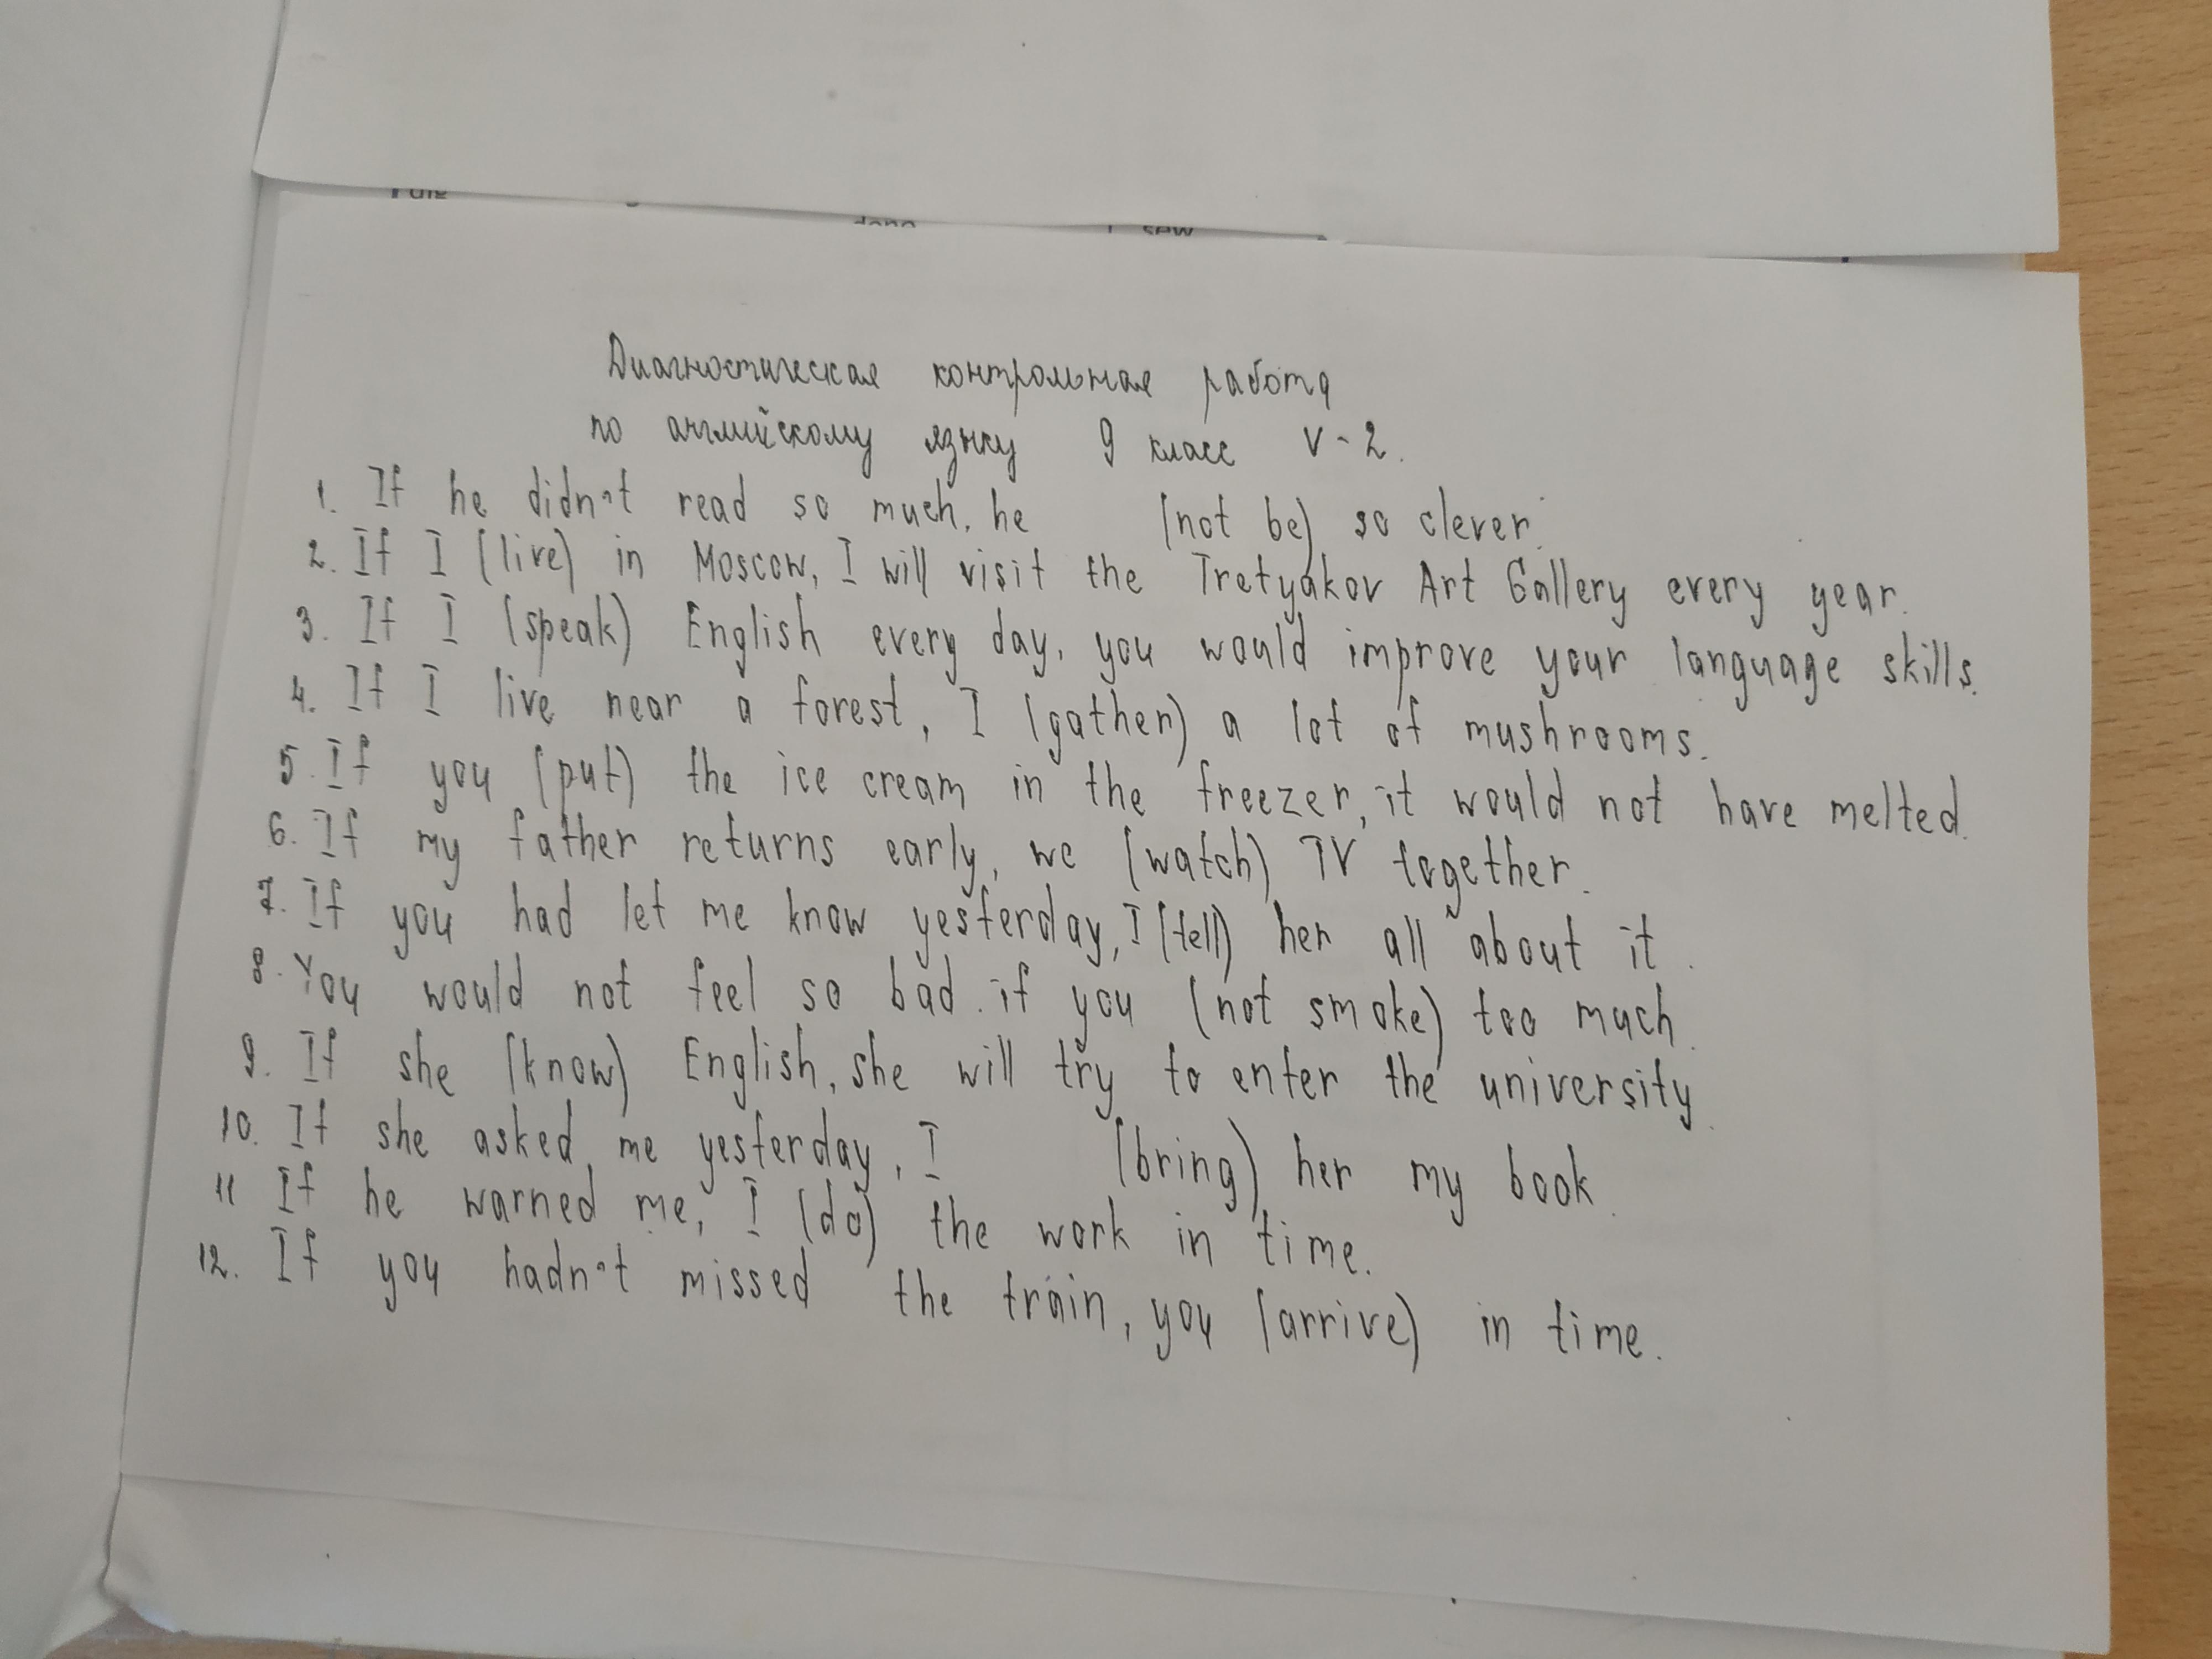 Диагностическая контрольная работа
по английскому языку 9 класс V-2.
1. If he didn't read so much, he (not be) so clever.
2. If I (live) in Moscow, I will visit the Tretyakov Art Gallery every year.
3. If I (speak) English every day, you would improve your language skills.
4. If I live near a forest, I (gather) a lot of mushrooms.
5. If you (put) the ice cream in the freezer, it would not have melted.
6. If my father returns early, we (watch) TV together.
7. If you had let me know yesterday, I (tell) her all about it.
8. You would not feel so bad. if you (not smoke) too much.
9. If she (know) English, she will try to enter the university.
10. If she asked me yesterday, I (bring) her my book.
11 If he warned me, I (do) the work in time.
12. If you hadn't missed the train, you (arrive) in time.